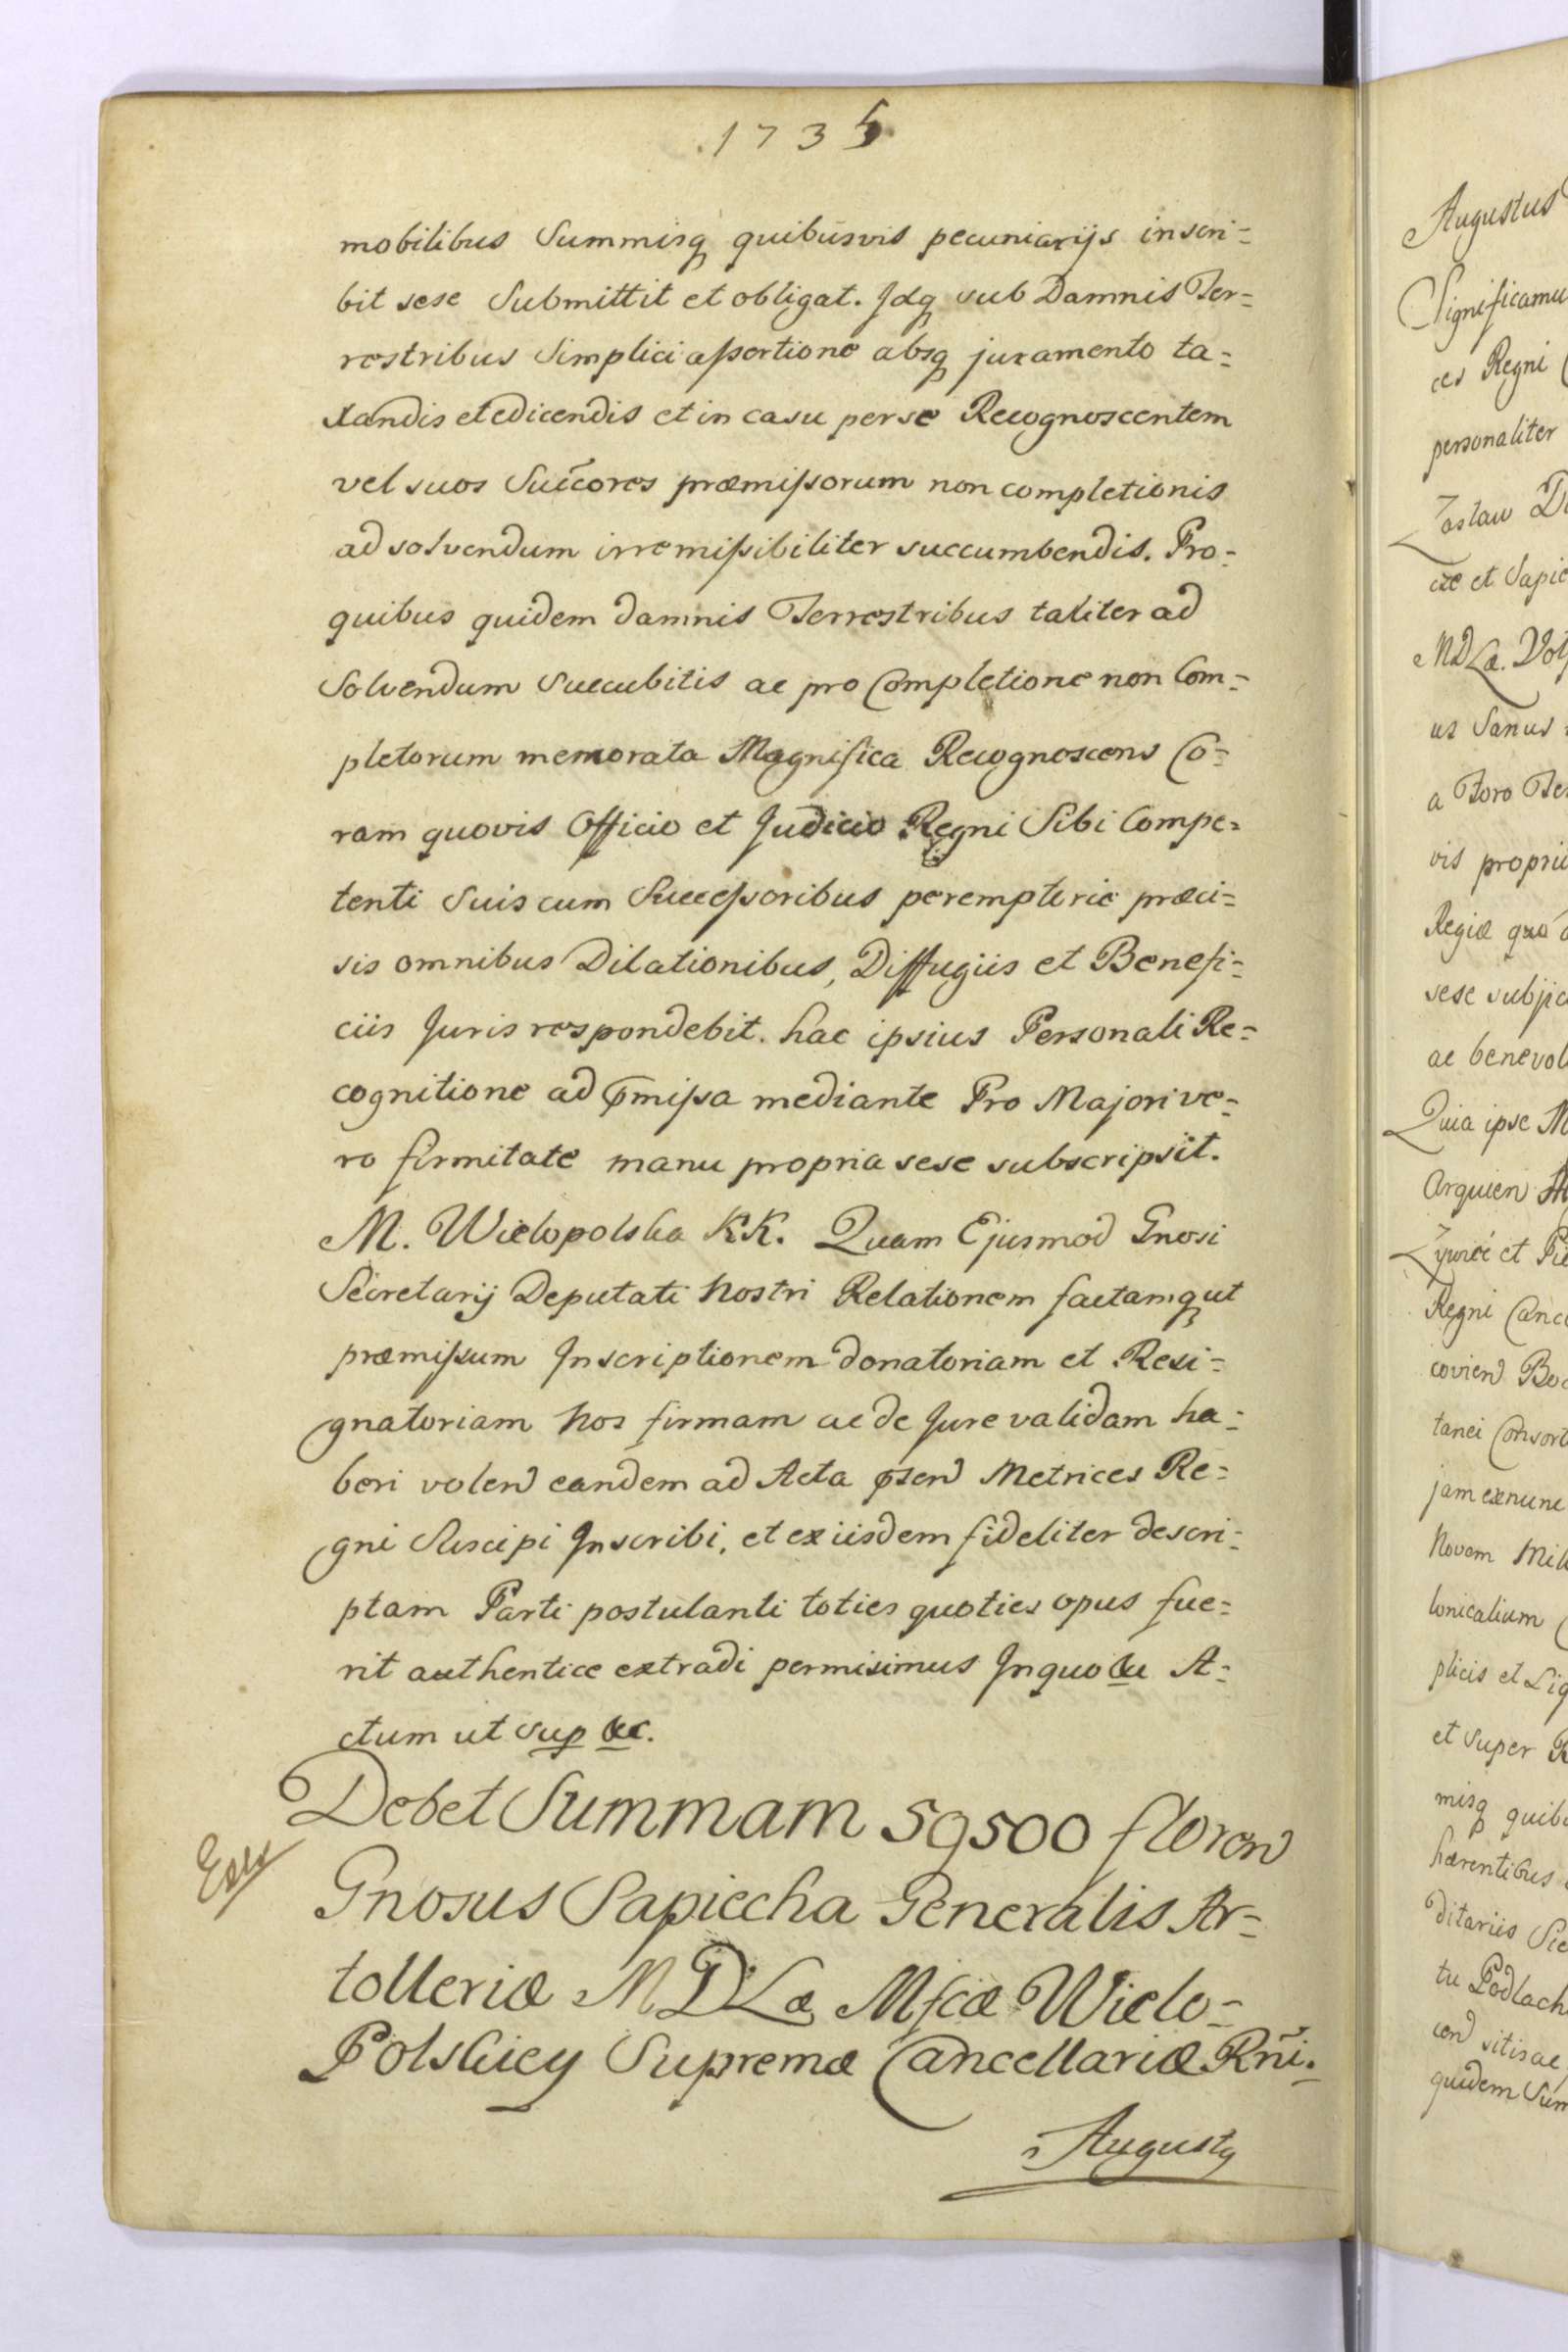 1735
mobilibus Summisq quibusvis pecuniarijs inscri=
bit sese Submittit et obligat. Jdq sub Damnis Ter=
restribus Simplici assertione absq juramento ta=
xandis et edicendis et in casu per se Recognoscentem
vel suos Succores præmissorum non completionis
ad solvendum irremissibiliter succumbendis. Pro=
quibus quidem damnis Terrestribus taliter ad
Solvendum Succubitis ac pro Completione non Com=
pletorum memorata Magnifica Recognoscens Co=
ram quovis Officio et Judicio Regni Sibi Compe=
tenti Suis cum Successoribus peremptorie præci=
sis omnibus Dilationibus, Diffugiis et Benefi=
ciis Juris respondebit. hac ipsius Personali Re=
cognitione ad pmissa mediante Pro Majori ve=
ro firmitate manu propria sese subscripsit.
M. Wielopolska KK. Quam Ejusmod Gnosi
Secretarij Deputati Nostri Relationem factamq ut
præmissum Inscriptionem donatoriam et Resi=
gnatoriam Nos firmam ac de Jure validam ha=
beri volen eandem ad Acta psen Metrices Re=
gni Suscipi Inscribi, et ex iisdem fideliter descri=
ptam Parti postulanti toties quoties opus fue=
rit authentice extradi permisimus Inquo cu A=
ctum ut sup &c.
Debet Summam 59500 floren
Gnosus Sapiecha Generalis Ar=
tolleriæ MDLæ Mfcæ Wielo=
Polskiey Supremæ Cancellariæ Rni.
Augustq
Augustus
Significamu
ces Regni
personaliter
Zaslaw
ciæ et Sapie
MDLæ.
us Sanus
a Foro Ter
vis propri
Regiæ quo
sese subjic
ac benevol
Quia ipse M
Arquien
Zywiec et Pie
Regni Canc
covien Bo
tanei Consort
jam ex nunc
Novem Mill
lonicalium
plicis et Liq
et super R
misq quib
hærentibus
ditariis
tu Podlach
cen sitis ac
quidem Sum